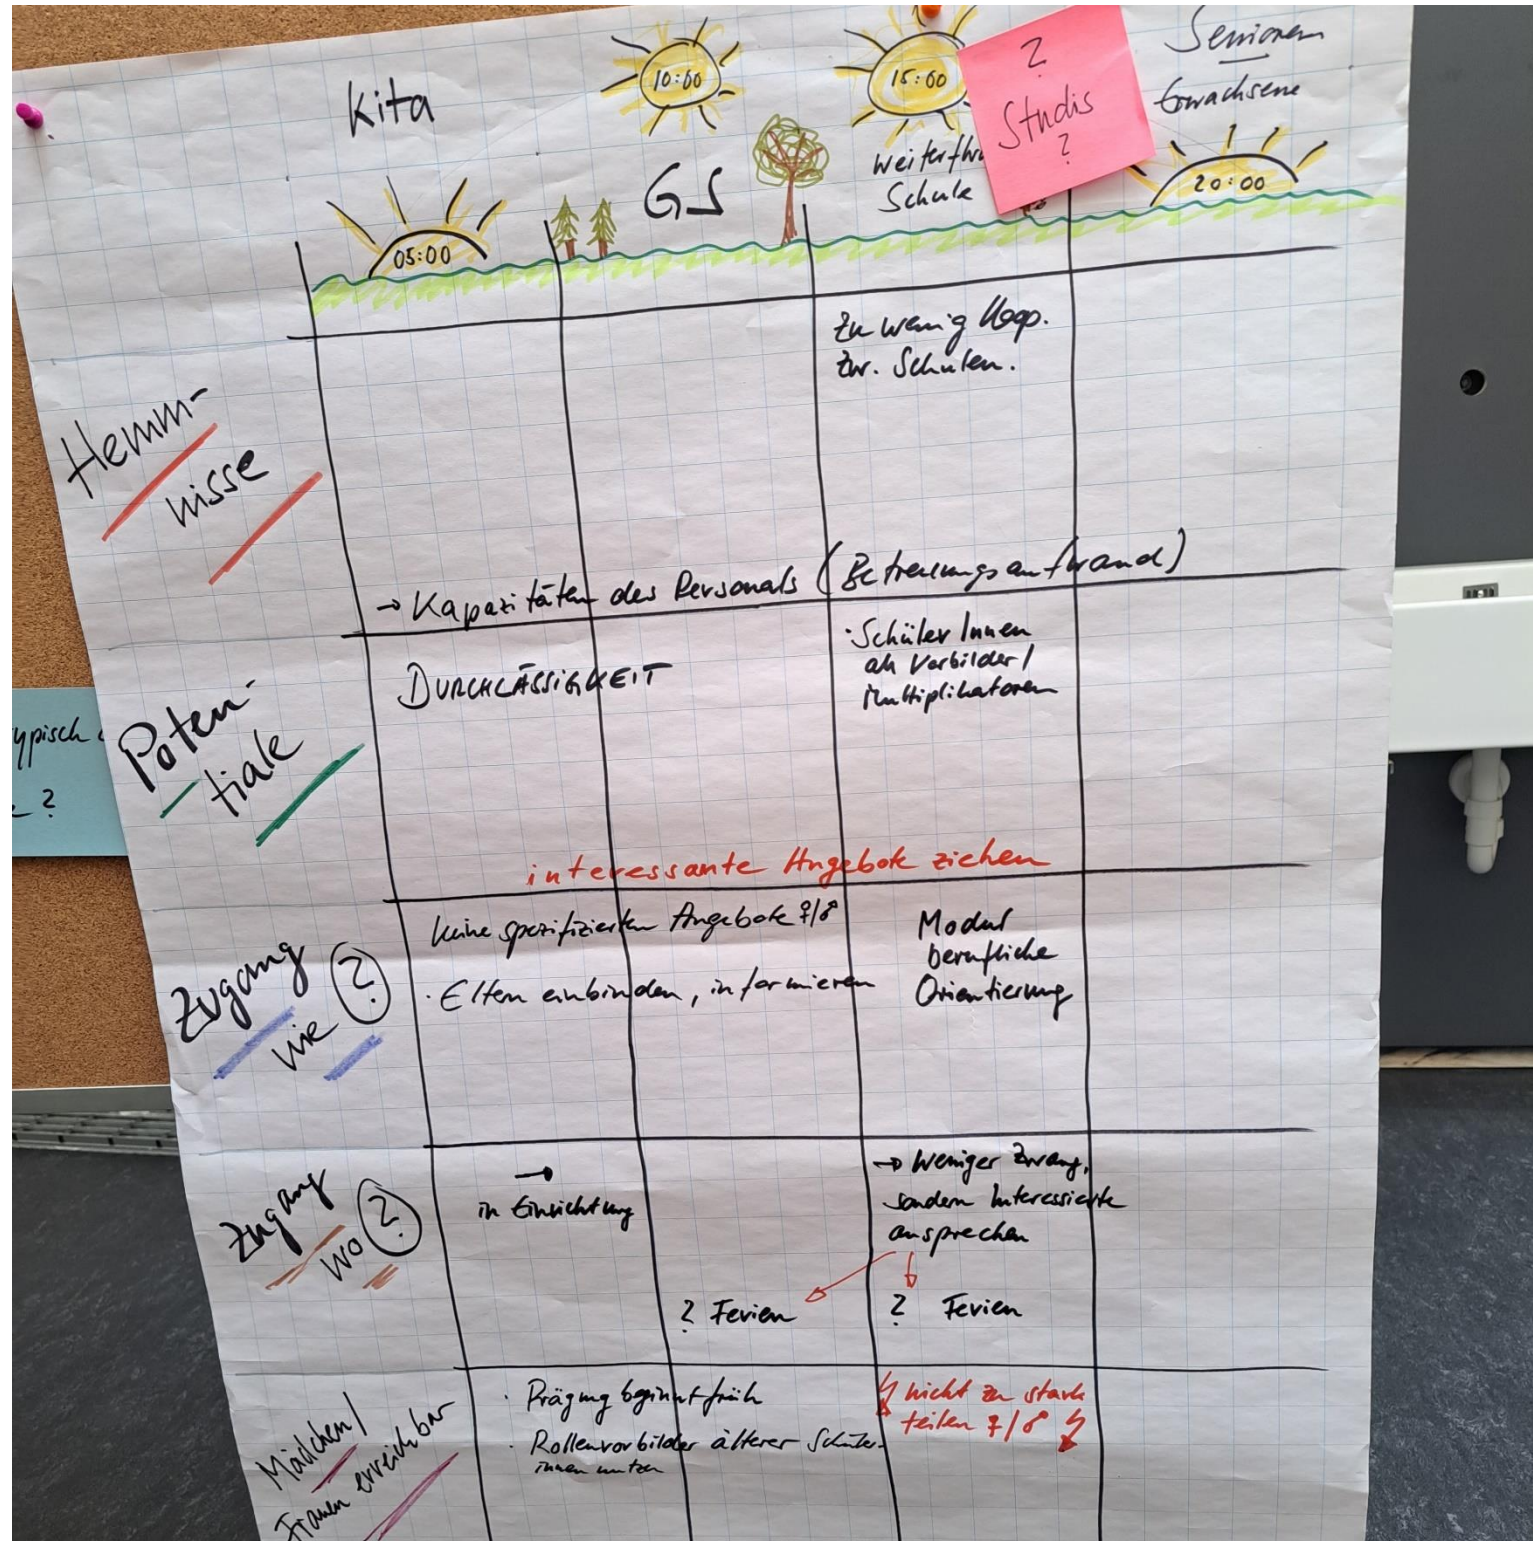 Kita
10:00
15:00
?
Studis
?
Senioren
Erwachsene
05:00
GS
Schule
20:00
Hemm-
nisse
Zu wenig Koop.
zw. Schulen.
→ Kapazitäten des Personals (Betreuungsaufwand)
ypisch
?
Poten-
tiale
DURCHLÄSSIGKEIT
· SchülerInnen
als Vorbilder /
Multiplikatoren
interessante Angebote ziehen
Zugang
wie ?
keine spezifizierten Angebote ♀/♂
· Eltern einbinden, informieren
Modul
berufliche
Orientierung
Zugang
wo ?
→
in Einrichtung
? Ferien
→ Weniger Zwang,
sondern Interessierte
ansprechen
? Ferien
Mädchen /
Frauen erreichbar
· Prägung beginnt früh
· Rollenvorbilder älterer Schüler-
innen nutzen
nicht zu stark
teilen ♀/♂